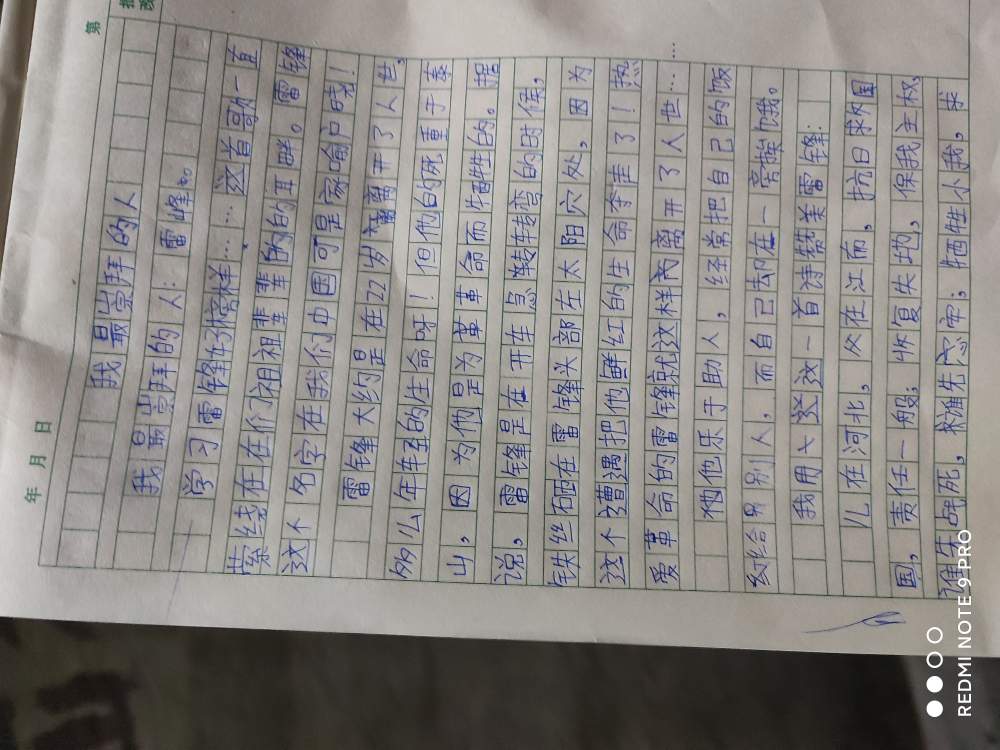 年 月 日
第
我最崇拜的人
我最崇拜的人：雷峰。
学习雷锋好榜样……这首歌一直
萦绕在在们祖祖辈辈的的耳畔。雷锋
这个名字在我们中国可是家喻户晓！
雷锋大约是在22岁离开了人世，
多么年轻的生命呀！但他的死重于泰
山，因为他是为革命而牺牲的。据
说，雷锋是在开车急转转弯的时候，
铁丝砸在雷锋头部左太阳穴处，因为
这个遭遇把他鲜红的生命夺走了！热
爱革命的雷锋就这样离开了人世……
他他乐于助人，经常把自己的饭
给别别人，而自己却在一旁挨饿。
我用这这一首诗赞美雷锋：
儿在河北，父在江南，抗日救国
国，责任一般；收复失地，保我主权，
谁先战死，谁先心安；牺牲小我，求
REDMI NOTE 9 PRO